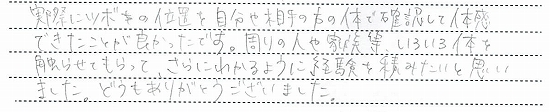 実際にツボ等の位置を自分や相手の方の体で確認して体感
できたことが良かったです。周りの人や家族等、いろいろ体を
触らせてもらって、さらにわかるように経験を積みたいと思い
ました。どうもありがとうございました。